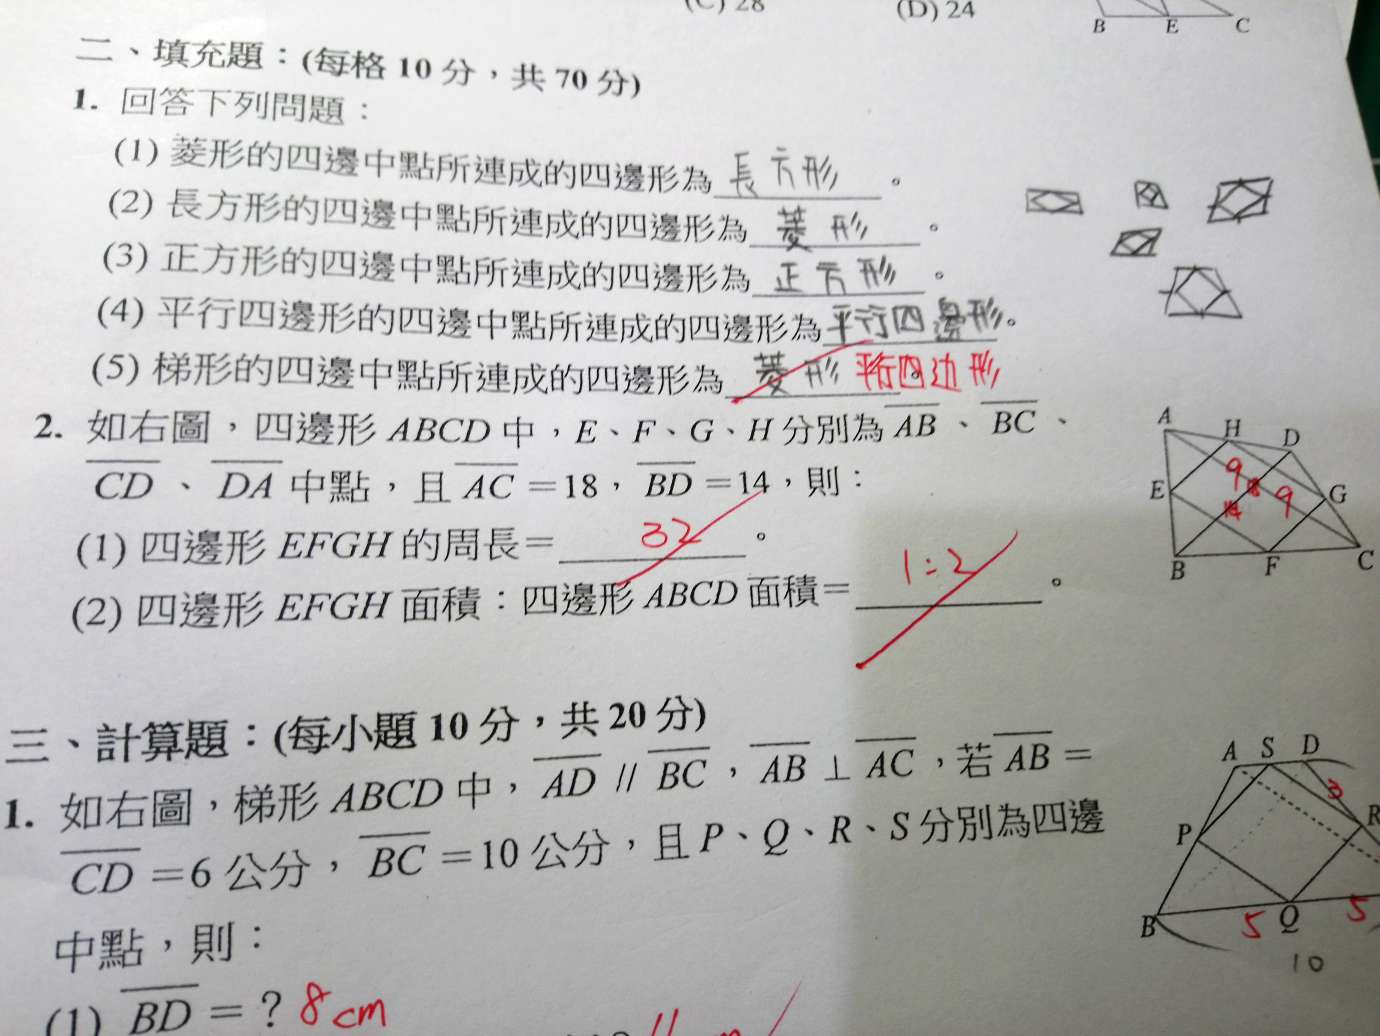 (C) 28 (D) 24
B E C
二、填充題：(每格 10 分，共 70 分)
1. 回答下列問題：
(1) 菱形的四邊中點所連成的四邊形為 長方形 。
(2) 長方形的四邊中點所連成的四邊形為 菱形 。
(3) 正方形的四邊中點所連成的四邊形為 正方形 。
(4) 平行四邊形的四邊中點所連成的四邊形為 平行四邊形。
(5) 梯形的四邊中點所連成的四邊形為 菱形 平行四边形 。
2. 如右圖，四邊形 ABCD 中，E、F、G、H 分別為 AB、BC、
CD、DA 中點，且 AC =18，BD =14，則：
(1) 四邊形 EFGH 的周長= 32 。
(2) 四邊形 EFGH 面積：四邊形 ABCD 面積= 1:2 。
A H D
E 9 18 9 G
14
B F C
三、計算題：(每小題 10 分，共 20 分)
1. 如右圖，梯形 ABCD 中，AD // BC，AB ⊥ AC，若 AB =
CD =6 公分，BC =10 公分，且 P、Q、R、S 分別為四邊
中點，則：
(1) BD = ? 8cm
A S D
3
P R
B 5 Q 5
10